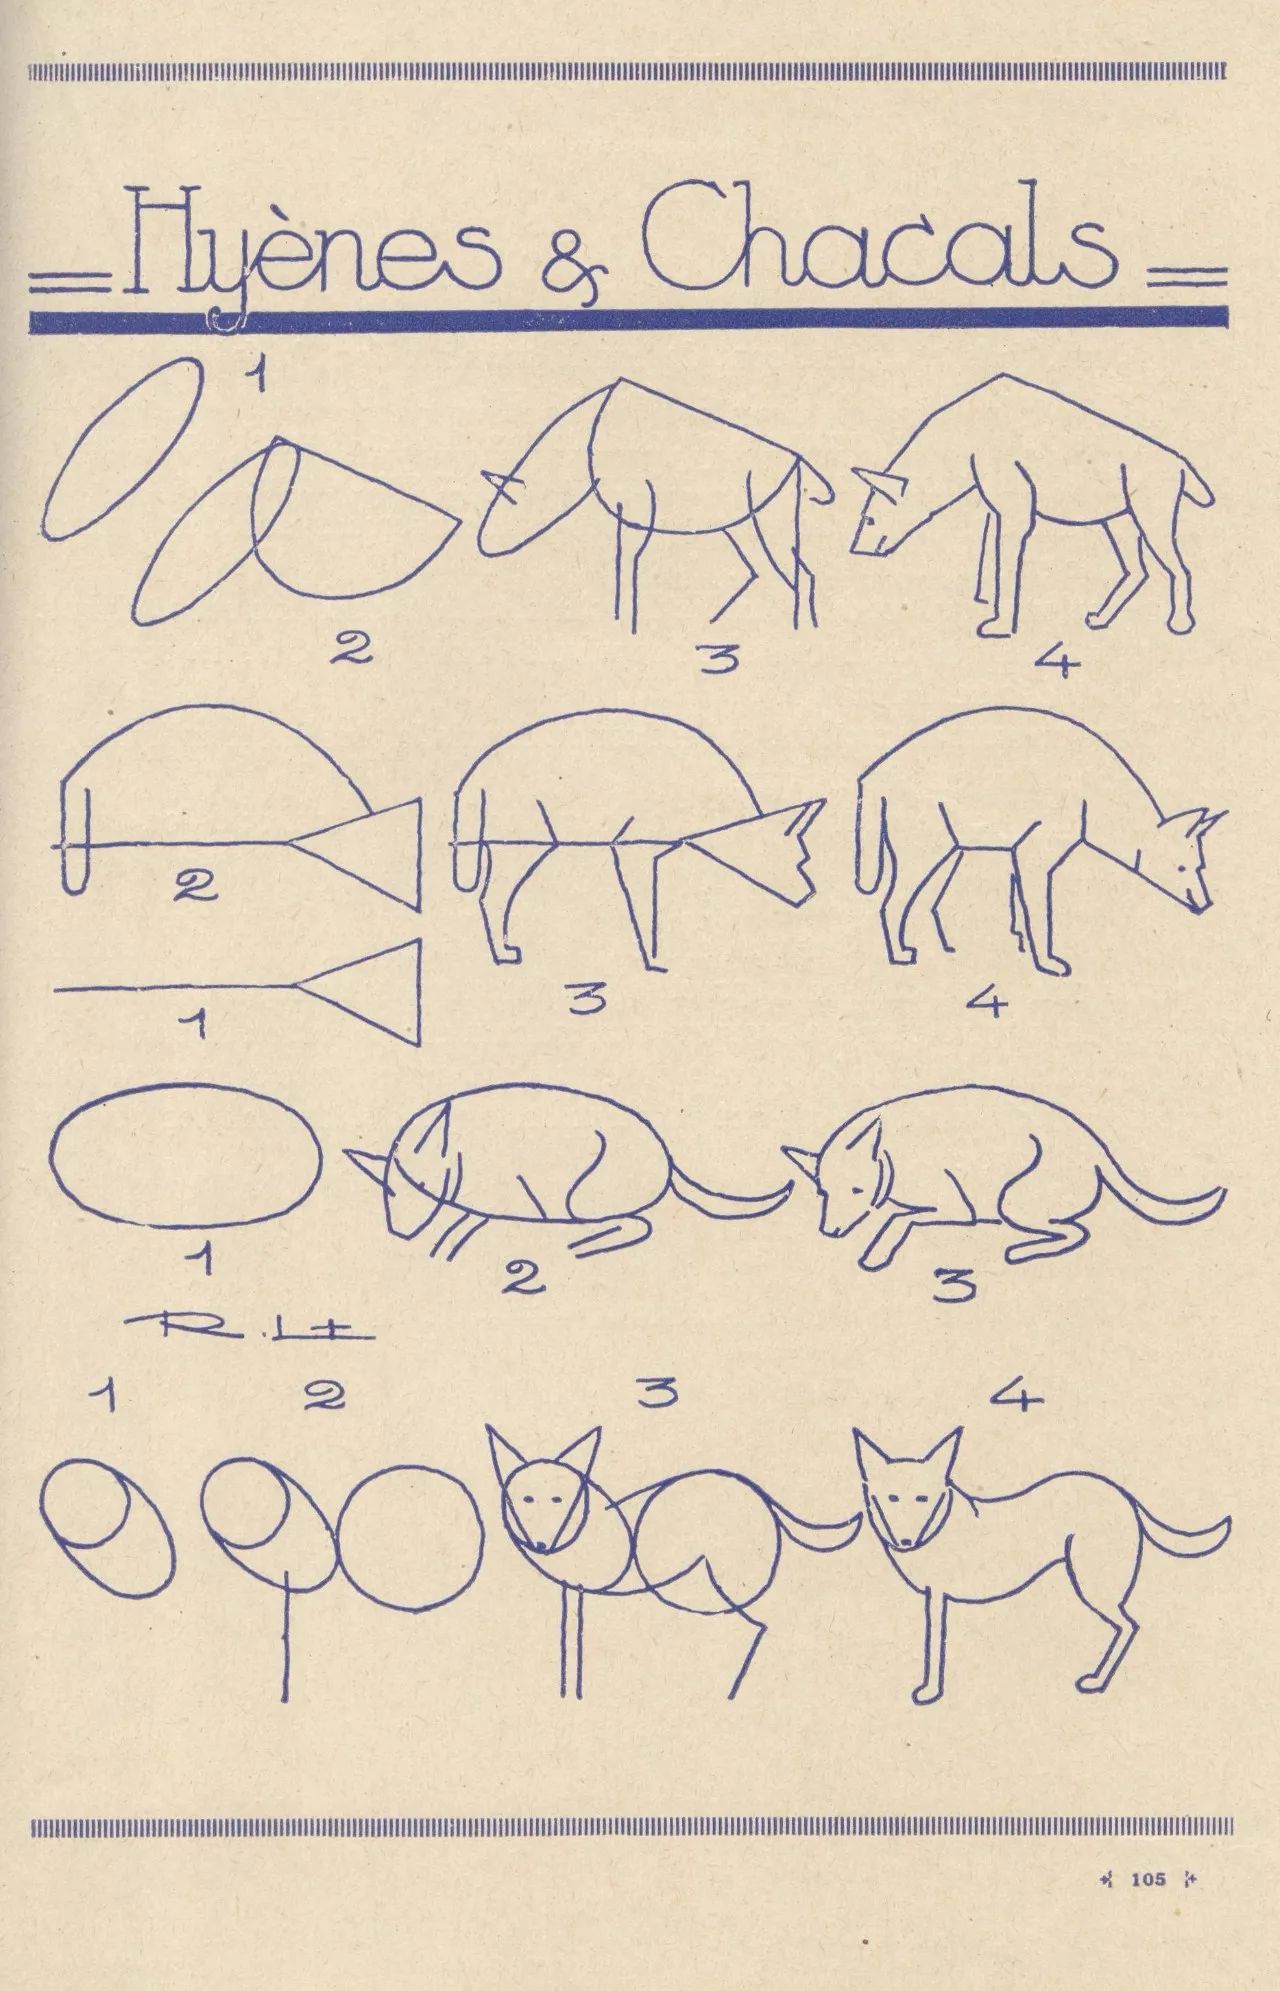 Hyènes & Chacals
1
2
3
4
2
1
3
4
1
2
3
R.Lt
1
2
3
4
105